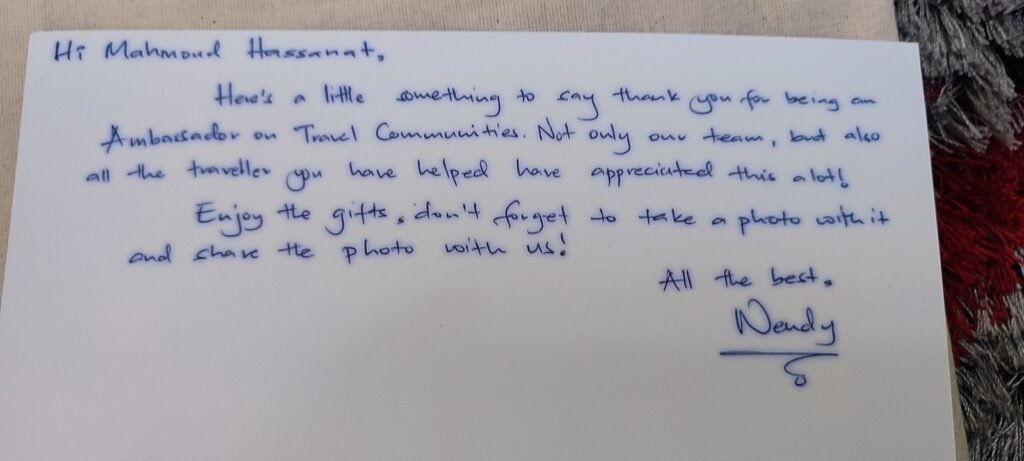 Hi Mahmoud Hassanat,
Here's a little something to say thank you for being an
Ambassador on Travel Communities. Not only our team, but also
all the traveller you have helped have appreciated this a lot!
Enjoy the gifts, don't forget to take a photo with it
and share the photo with us!
All the best,
Wendy